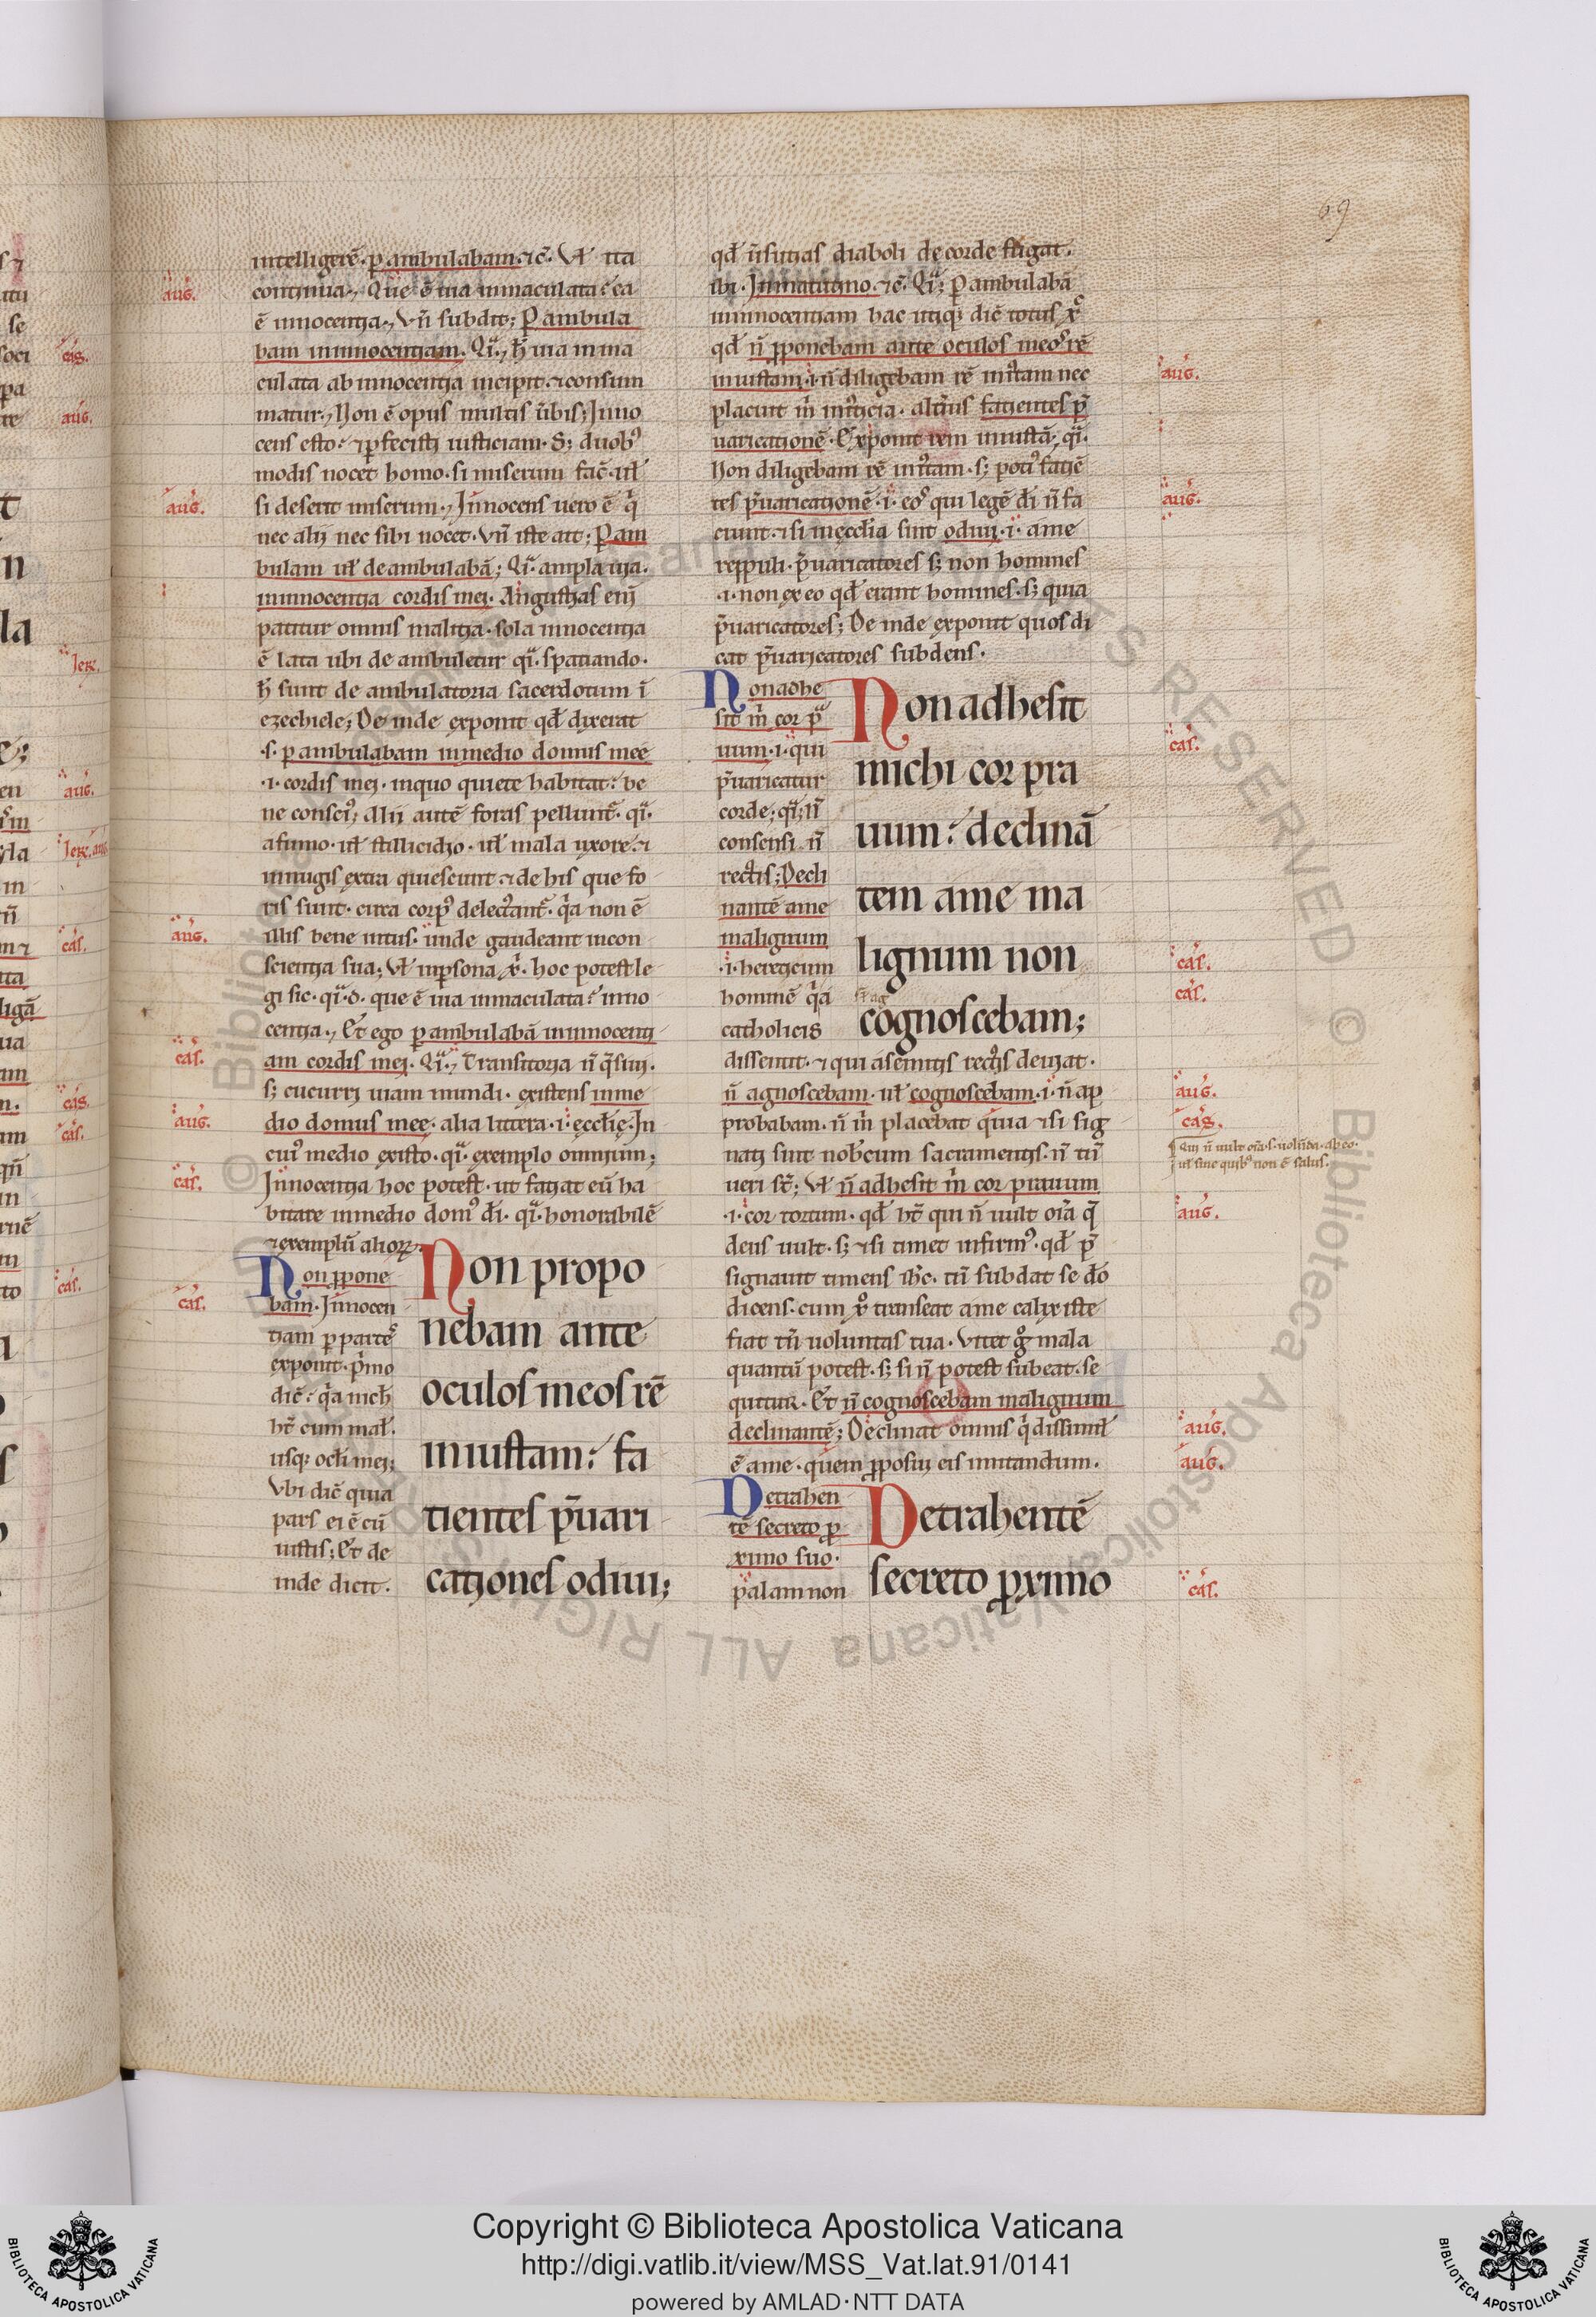 69
intelligerē · perambulabam · ⁊c̄ · Vł ita
continua · Que ē uia inmaculata ? ea
ē innocentia · Vn̄ subdit ; Perambula
bam in innocentiam · Qͥ. h̄ uia inma
culata ab innocentia incipit · ⁊ consum
matur · Non ē opus multis ūbis ; Inno
cens esto · ⁊ perfecisti iusticiam · S; duobꝰ
modis nocet homo · si miserum fac̄ · uł
si deserit miserum · Innocens uero ē qͥ
nec alij nec sibi nocet · vn̄ iste ait ; Peram
bulam uł deambulabā ; Qͥ. ampla uia ·
in innocentia cordis mei · Angustias enī
patitur omnis malitia · sola innocentia
ē lata ubi deambuletur qͥ. spatiando ·
h̄ sunt deambulatoria sacerdotum ī
ezechiele ; Deinde exponit qđ dixerat
· s · perambulabam in medio domus meę
· i · cordis mei · in quo quiete habitat ? be
ne consciꝰ ; alii autē foras pelluntͬ · qͥ.
a fumo · uł stillicidio · uł mala uxore · ⁊
in nugis extra quiescunt ⁊ de his que fo
ris sunt · circa corpꝰ delectantͬ · qͥa non ē
illis bene intus · unde gaudeant in con
scientia sua ; Vł in persona xͥ · hoc potest le
gi sic · qͥ. d · que ē uia inmaculata ? inno
centia · Et ego perambulabā in innocenti
am cordis mei · Qͥ. Transitoria n̄ q̄siui ·
s; cucurri uiam mundi · existens in me
dio domus meę · alia littera · i · ęccłię · In
cuiꝰ medio existo · qͥ. exemplo omnium ;
Innocentia hoc potest · ut faciat eū ha
bitare in medio domꝰ đi · qͥ. honorabilē
⁊ exemplū alioꝝ ·
Non ꝓpone
bam · Innocen
tiam per partes
exponit · pͥmo
dic̄ ? qͥa nich̄
ht̄ cum mał ·
usq; ocłi mei ;
Vbi dic̄ quia
pars ei ē cū
iustis ; Et de
inde dicit ·
Non propo
nebam ante
oculos meos rē
iniustam ? fa
tientes p̄uari
cationes odiui ;
qđ uersutias diaboli de corde fugat ·
ibi · In matutino · ⁊c̄ · Qͥ; Perambulabā
in innocentiam hac utiq; dic̄ totus xͦ
qđ n̄ ꝓponebam ante oculos meos rē
iniustam · i · n̄ diligebam rē iniustam nec
placuit m̄ iniusticia · alterius facientes p̄
uaricationē · Exponit rem iniustā · qͥ.
Non diligebam rē iniustam · s; potiꝰ faciē
tes p̄uaricationē · i · eos qui legē đi n̄ fa
ciunt · ⁊ si in ęccłia sint odiui · i · a me
reppuli · p̄uaricatores s; non homines
· i · non ex eo qđ erant homines · s; quia
p̄uaricatores ; Deinde exponit quos di
cat p̄uaricatores subdens ·
Non adhe
sit m̄ cor pͣ
uum · i · qui
p̄uaricatur
corde ; qͥ; n̄
consensi n̄
rectis ; Decli
nantē a me
malignum
· i · hereticum
hominē qͥa
catholicis
Non adhesit
michi cor pra
uum ? declinā
tem a me ma
lignum non
cognoscebam ;
dissentit · ⁊ qui a semitis rectis deuiat ·
n̄ agnoscebam · uł cognoscebam · i · n̄ ap
probabam · n̄ m̄ placebat quia ⁊ si sig
nati sint nobiscum sacramentis · n̄ tn̄
ueri st̄ ; Vł n̄ adhesit m̄ cor prauum
· i · cor tortum · qđ ht̄ qui n̄ uult oīa q̄
deus uult · s; ⁊ si timet infirmꝰ · qđ p̄
signauit timens ih̄c · tn̄ subdat se do
dicens · cum xͦ transeat a me calix iste
fiat tn̄ uoluntas tua · Vitet gͦ mala
quantū potest · s; si n̄ potest subeat · se
quitur · Et n̄ cognoscebam malignum
declinantē ; Declinat omnis qͥ dissimił
ē a me · quem ꝓposui eis imitandum ·
Detrahen
tē secreto ꝓ
ximo suo ·
palam non
Detrahentē
secreto ꝓximo
aug.
aug.
cas.
aug.
cas.
cas.
aug.
aug.
cas.
cas.
cas.
aug.
cas.
aug.
aug.
aug.
cas.
Copyright © Biblioteca Apostolica Vaticana
http://digi.vatlib.it/view/MSS_Vat.lat.91/0141
powered by AMLAD·NTT DATA